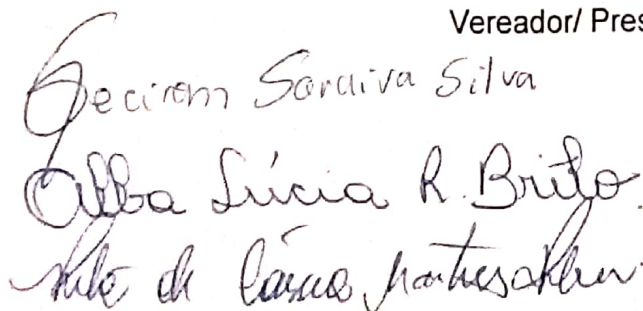 Vereador/ Pres
Gecirom Saraiva Silva
Alba Lúcia R. Brito.
de Cássia